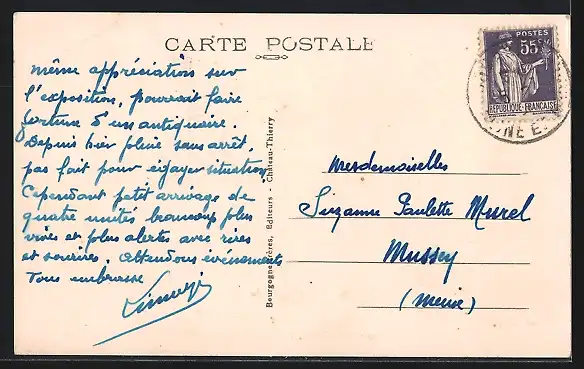 CARTE POSTALE
même appréciations sur
l'exposition, pourrait faire
fortune d'un antiquaire.
Depuis hier pluie sans arrêt,
pas fait pour égayer situation
Cependant petit arrivage de
quatre unités beaucoup plus
vives et plus alertes avec rires
et sourires. Attendons événements
Vous embrasse
Bourgogne Frères, Editeurs - Château-Thierry
POSTES
55c
REPUBLIQUE FRANÇAISE
Mesdemoiselles
Suzanne Paulette Murel
Mussey
(Meuse)